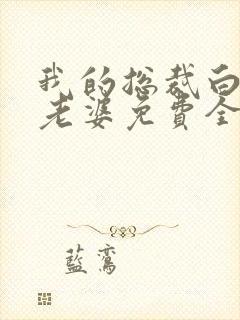 我的总裁白
老婆免費全
藍鸞